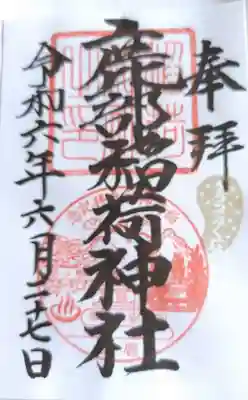 奉拝
鹿部稲荷神社
令和六年六月二十七日